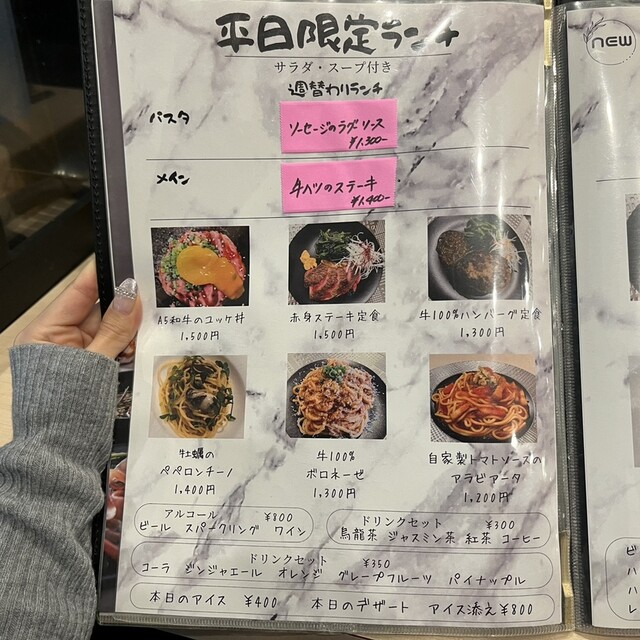 平日限定ランチ
NEW
サラダ・スープ付き
週替わりランチ
パスタ
ソーセージのラグーソース
¥1,300-
メイン
牛ハツのステーキ
¥1,400-
A5和牛のユッケ丼
1,500円
赤身ステーキ定食
1,500円
牛100%ハンバーグ定食
1,300円
牡蠣の
ペペロンチーノ
1,400円
牛100%
ボロネーゼ
1,300円
自家製トマトソースの
アラビアータ
1,200円
アルコール ¥800
ビール スパークリング ワイン
ドリンクセット ¥300
烏龍茶 ジャスミン茶 紅茶 コーヒー
ドリンクセット ¥350
コーラ ジンジャエール オレンジ グレープフルーツ パイナップル
本日のアイス ¥400 本日のデザート アイス添え ¥800